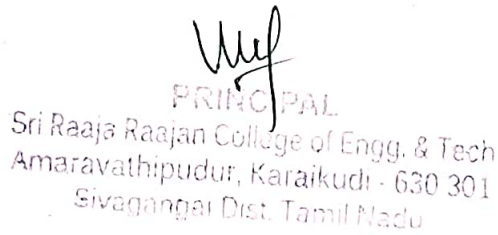 PRINCIPAL
Sri Raaja Raajan College of Engg. & Tech
Amaravathipudur, Karaikudi - 630 301
Sivagangai Dist. Tamil Nadu